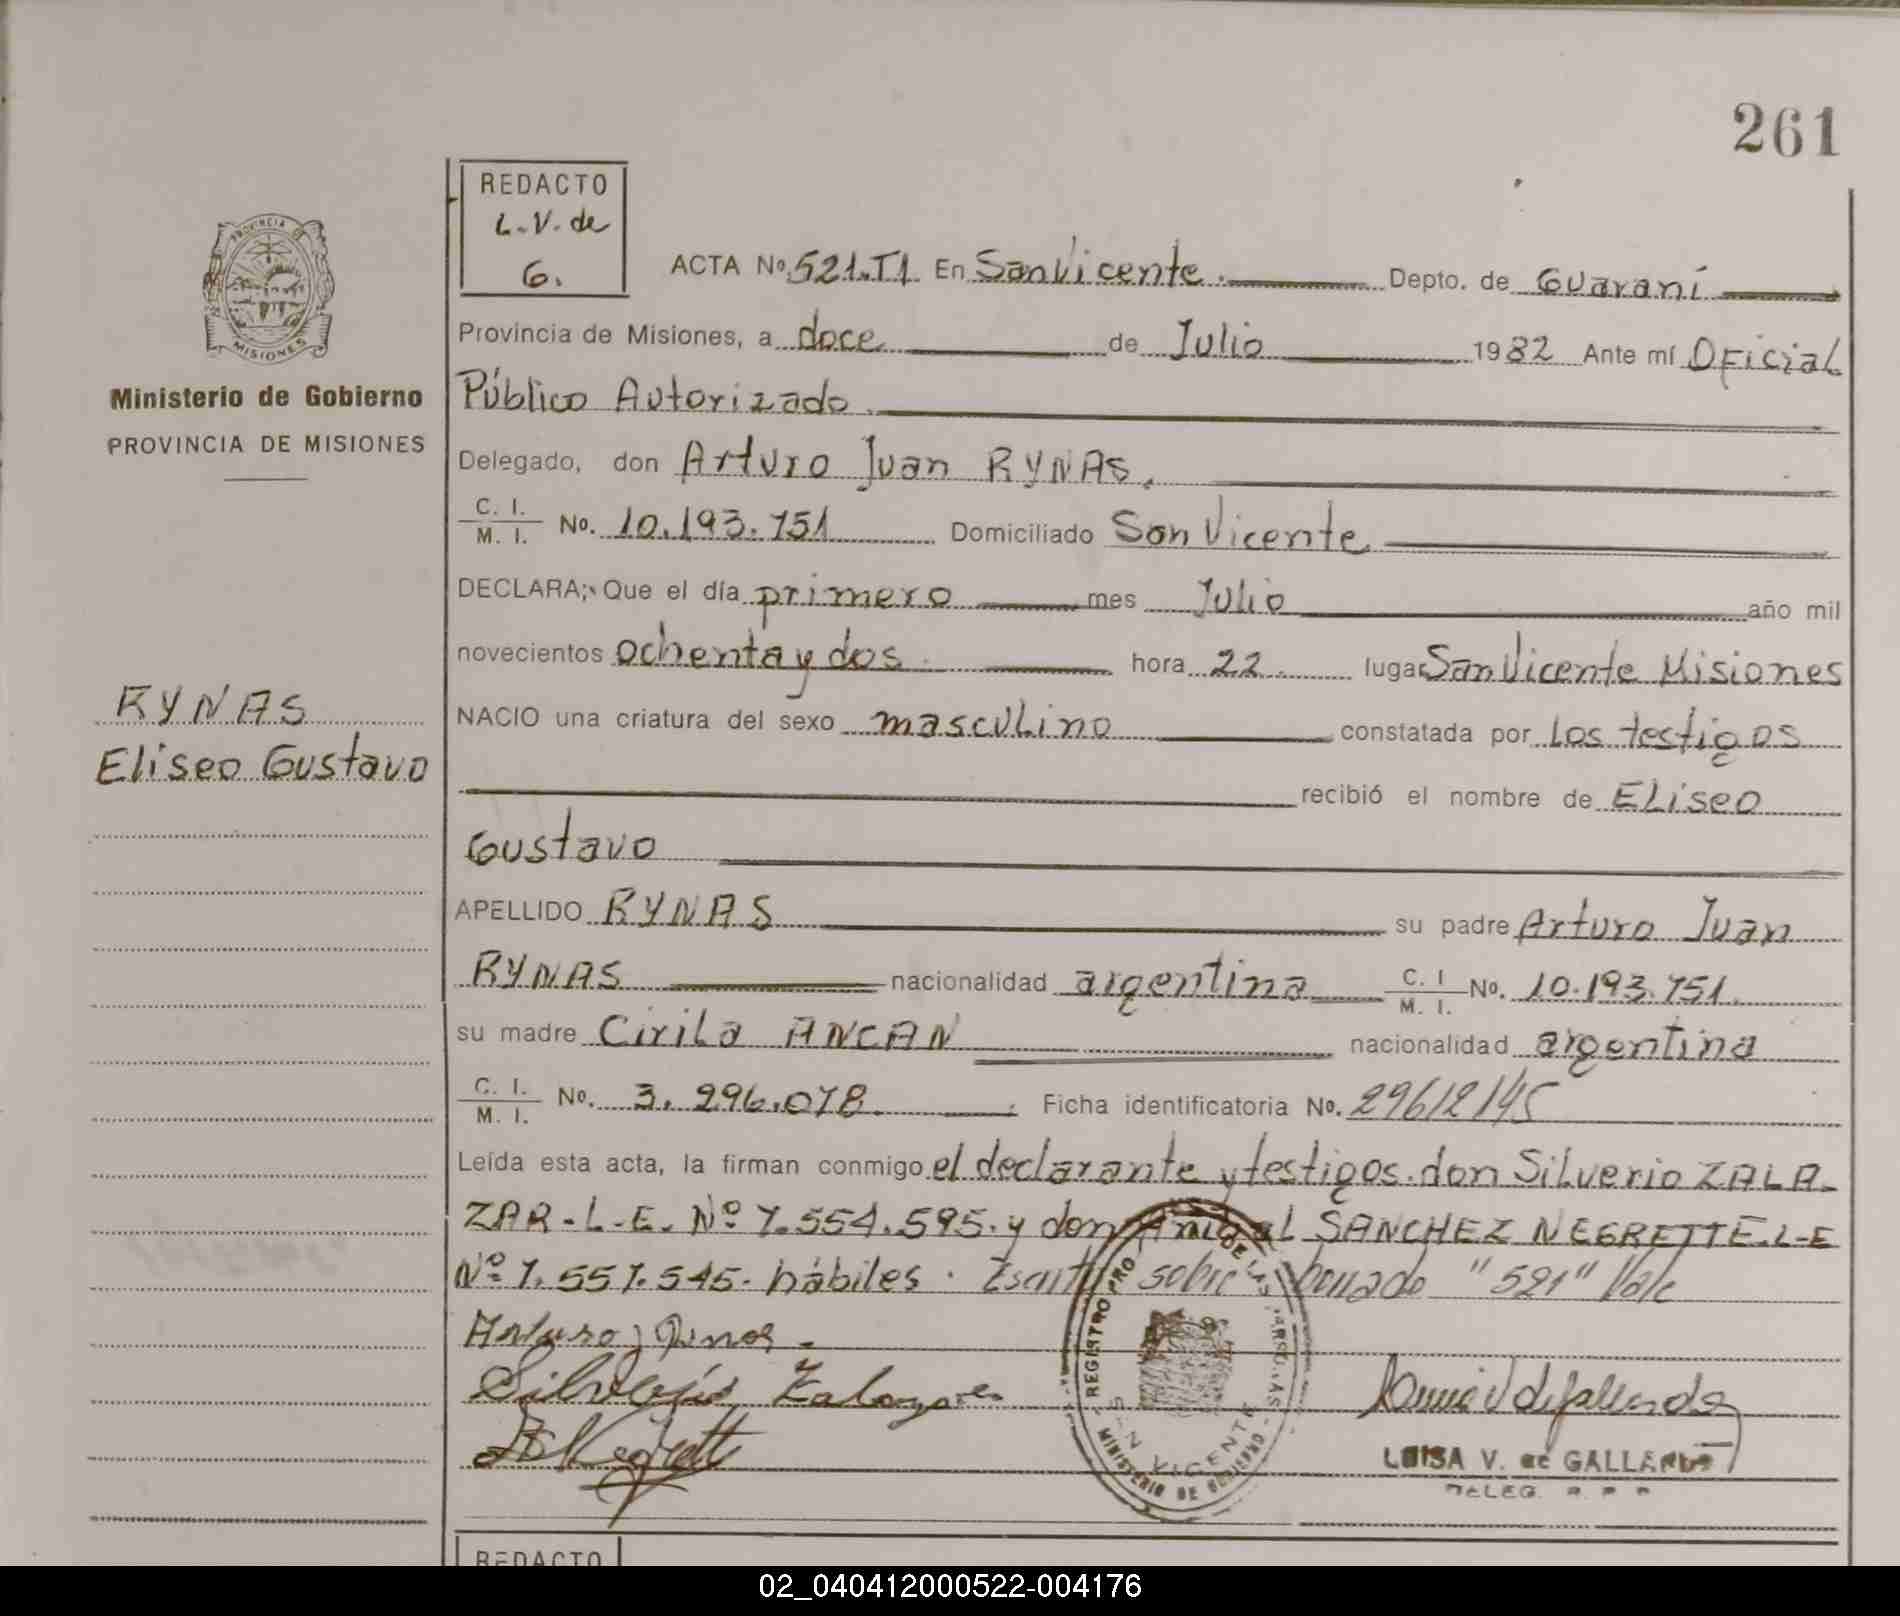 261
REDACTO
L.V. de
G.
ACTA No. 521.T1. En San Vicente. Depto. de Guaraní
Provincia de Misiones, a doce de Julio 1982 Ante mí Oficial
Público Autorizado.
Delegado, don Arturo Juan RYNAS.
C. I.
M. I. No. 10.193.751 Domiciliado San Vicente
DECLARA; Que el día primero mes Julio año mil
novecientos ochenta y dos. hora 22. lugar San Vicente Misiones
NACIO una criatura del sexo masculino constatada por los testigos
recibió el nombre de Eliseo
Gustavo
APELLIDO RYNAS su padre Arturo Juan
RYNAS nacionalidad argentina C. I
M. I. No. 10.193.751.
su madre Cirila ANCAN nacionalidad argentina
C. I.
M. I. No. 3.296.078. Ficha identificatoria No. 296/2/45
Leída esta acta, la firman conmigo el declarante y testigos. don Silverio ZALA-
ZAR-L-E. Nº 7.554.595. y don Anibal SANCHEZ NEGRETTE.L-E
Nº 7.557.545. hábiles. Escrito sobre borrado "521" Vale
Arturo J Rynas.
Silverio Zalazar
LUISA V. de GALLARDO
DELEG. R. P. P.
REGISTRO PRO DE LAS
SAN VICENTE
MINISTERIO DE GOBIERNO
PROVINCIA DE
MISIONES
Ministerio de Gobierno
PROVINCIA DE MISIONES
RYNAS
Eliseo Gustavo
REDACTO
02_040412000522-004176